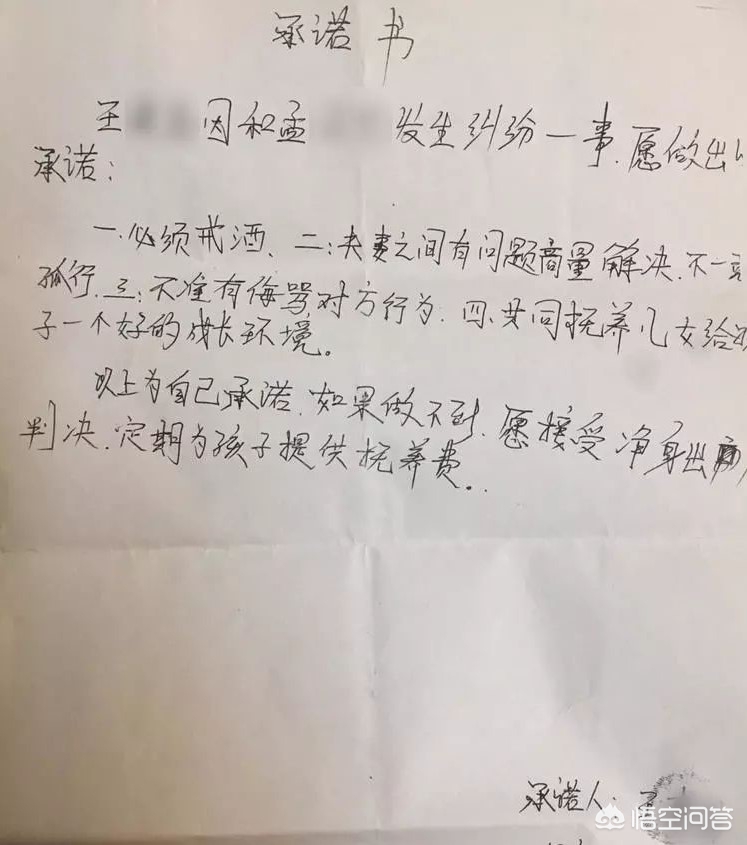 承诺书
王 因和孟 发生纠纷一事.愿做出
承诺：
一.必须戒酒、二:夫妻之间有问题商量解决.不一
孤行.三:不准有侮骂对方行为.四.共同抚养儿女给
子一个好的成长环境。
以上为自己承诺.如果做不到.愿接受净身出
判决.定期为孩子提供抚养费..
承诺人:
悟空问答